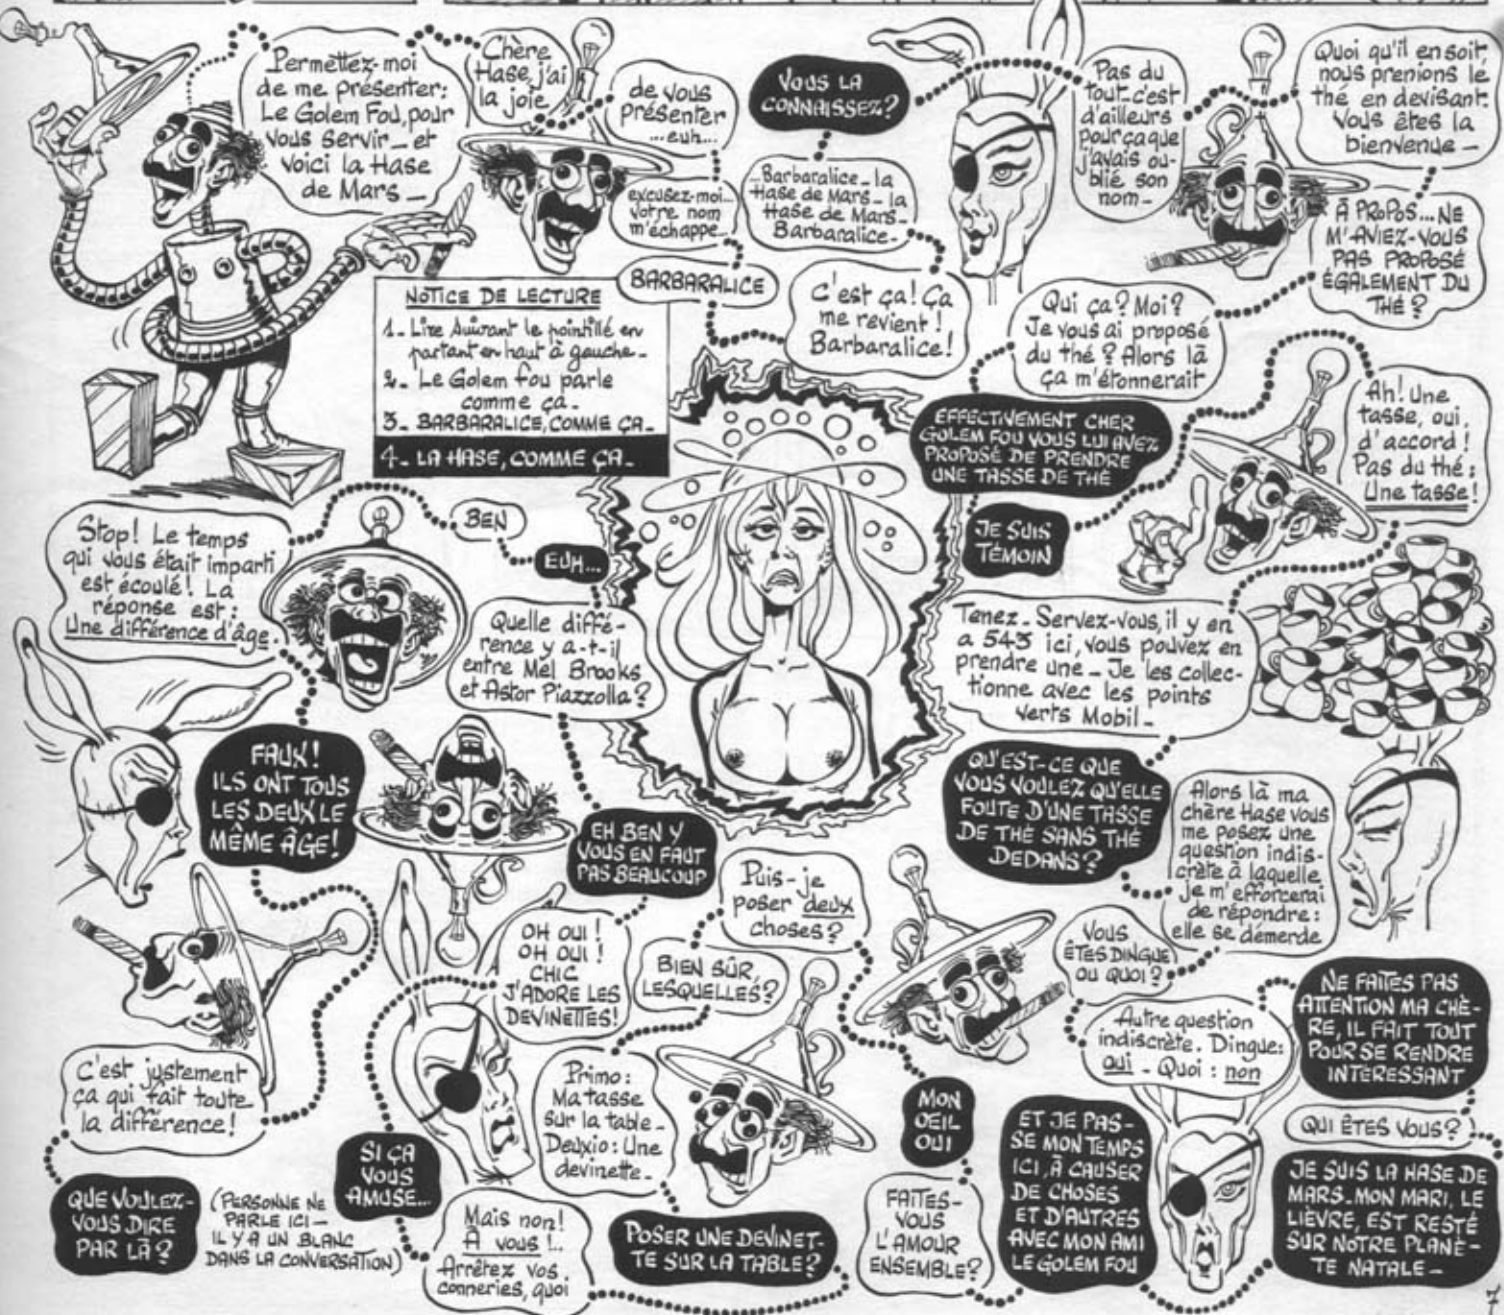 Permettez-moi
de me présenter:
Le Golem Fou, pour
vous servir _ et
voici la Hase
de Mars _
Chère
Hase, j'ai
la joie
de vous
présenter
...euh...
excusez-moi...
votre nom
m'échappe...
BARBARALICE
C'est ça! Ça
me revient!
Barbaralice!
..Barbaralice_la
Hase de Mars_la
Hase de Mars_
Barbaralice_
VOUS LA
CONNAISSEZ?
Pas du
tout, c'est
d'ailleurs
pour ça que
j'avais ou-
blié son
nom_
Quoi qu'il en soit,
nous prenions le
thé en devisant.
Vous êtes la
bienvenue _
À PROPOS... NE
M'AVIEZ-VOUS
PAS PROPOSÉ
ÉGALEMENT DU
THÉ?
Qui ça? Moi?
Je vous ai proposé
du thé? Alors là
ça m'étonnerait
EFFECTIVEMENT CHER
GOLEM FOU VOUS LUI AVEZ
PROPOSÉ DE PRENDRE
UNE TASSE DE THÉ
JE SUIS
TÉMOIN
Ah! Une
tasse, oui,
d'accord!
Pas du thé:
Une tasse!
Tenez_Servez-vous, il y en
a 543 ici, vous pouvez en
prendre une _ Je les collec-
tionne avec les points
verts Mobil_
QU'EST-CE QUE
VOUS VOULEZ QU'ELLE
FOUTE D'UNE TASSE
DE THÉ SANS THÉ
DEDANS?
Alors là ma
chère Hase vous
me posez une
question indis-
crète à laquelle
je m'efforcerai
de répondre:
elle se démerde
VOUS
ÊTES DINGUE
OU QUOI?
Autre question
indiscrète. Dingue:
oui _ Quoi: non
NE FAITES PAS
ATTENTION MA CHÈ-
RE, IL FAIT TOUT
POUR SE RENDRE
INTÉRESSANT
QUI ÊTES VOUS?
JE SUIS LA HASE DE
MARS_MON MARI, LE
LIÈVRE, EST RESTÉ
SUR NOTRE PLANÈ-
TE NATALE_
ET JE PAS-
SE MON TEMPS
ICI, À CAUSER
DE CHOSES
ET D'AUTRES
AVEC MON AMI
LE GOLEM FOU
FAITES-
VOUS
L'AMOUR
ENSEMBLE?
MON
OEIL
OUI
Puis-je
poser deux
choses?
BIEN SÛR,
LESQUELLES?
Primo:
Ma tasse
sur la table_
Deuxio: Une
devinette_
POSER UNE DEVINET-
TE SUR LA TABLE?
Mais non!
À vous!..
Arrêtez vos
conneries, quoi
SI ÇA
VOUS
AMUSE...
OH OUI!
OH OUI!
CHIC
J'ADORE LES
DEVINETTES!
EH BEN Y
VOUS EN FAUT
PAS BEAUCOUP
Quelle diffé-
rence y a-t-il
entre Mel Brooks
et Astor Piazzolla?
EUH...
BEN
Stop! Le temps
qui vous était imparti
est écoulé! La
réponse est:
Une différence d'âge.
FAUX!
ILS ONT TOUS
LES DEUX LE
MÊME ÂGE!
C'est justement
ça qui fait toute
la différence!
QUE VOULEZ-
VOUS DIRE
PAR LÀ?
(PERSONNE NE
PARLE ICI_
IL Y A UN BLANC
DANS LA CONVERSATION)
NOTICE DE LECTURE
1_ Lire suivant le pointillé en
partant en haut à gauche_
2_ Le Golem fou parle
comme ça_
3_ BARBARALICE, COMME ÇA_
4_ LA HASE, COMME ÇA_